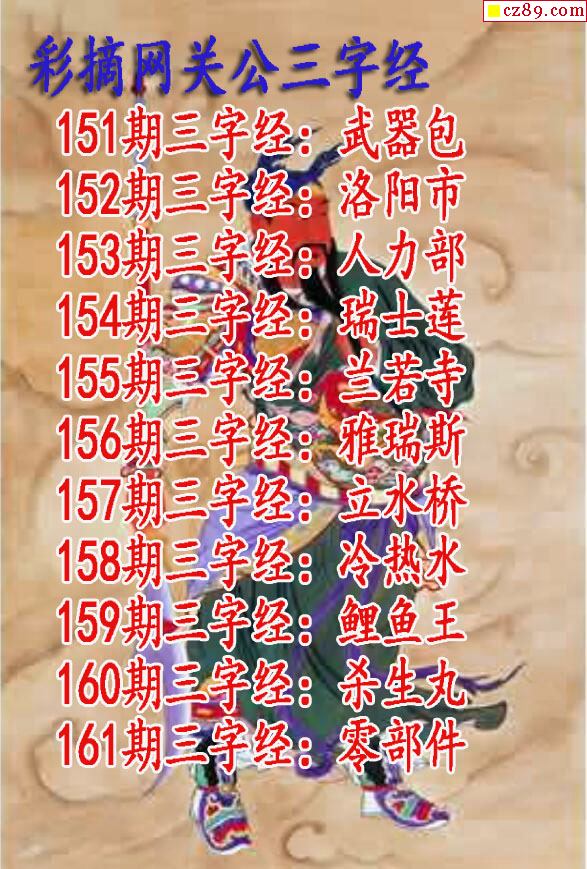 cz89.com
彩摘网关公三字经
151期三字经：武器包
152期三字经：洛阳市
153期三字经：人力部
154期三字经：瑞士莲
155期三字经：兰若寺
156期三字经：雅瑞斯
157期三字经：立水桥
158期三字经：冷热水
159期三字经：鲤鱼王
160期三字经：杀生丸
161期三字经：零部件